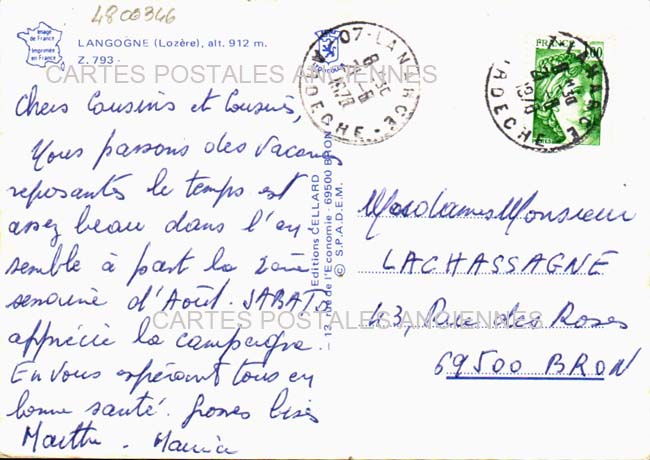 4800346
Image
de France
Imprimée
en France
LANGOGNE (Lozère), alt. 912 m.
Z. 793 -
CARTES POSTALES ANCIENNES
07-LANARCE
8 H 30
1978
ARDECHE
FRANCE
1,00
07-LANARCE
8 H 30
1978
ARDECHE
Chers Cousins et Cousines,
Nous passons des vacances
reposantes le temps est
assez beau dans l'en
semble à part la 2ème
semaine d'Août.
apprécie la campagne.
En vous espérant tous en
bonne santé. Grosses bises
Marthe - Maurice
Editions CELLARD
12, rue de l'Economie - 69500 BRON
© S.P.A.D.E.M.
Mesdames Monsieur
LACHASSAGNE
43, Rue des Roses
69500 BRON
CARTES POSTALES ANCIENNES